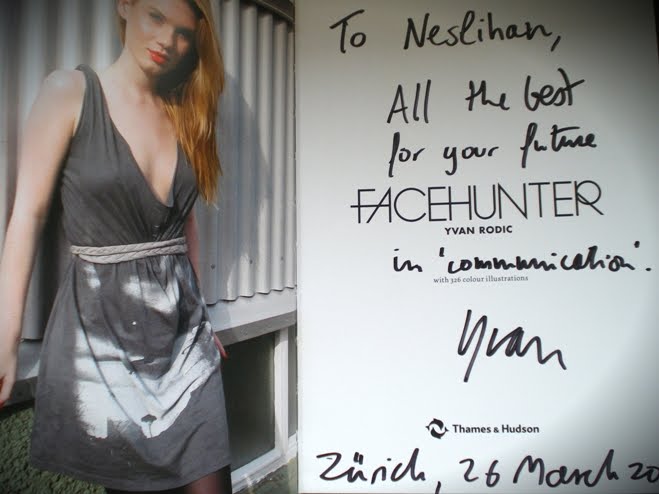 To Neslihan,
All the best
for your future
FACEHUNTER
YVAN RODIC
in 'communication'.
with 326 colour illustrations
Yvan
Thames & Hudson
Zürich, 26 March 20